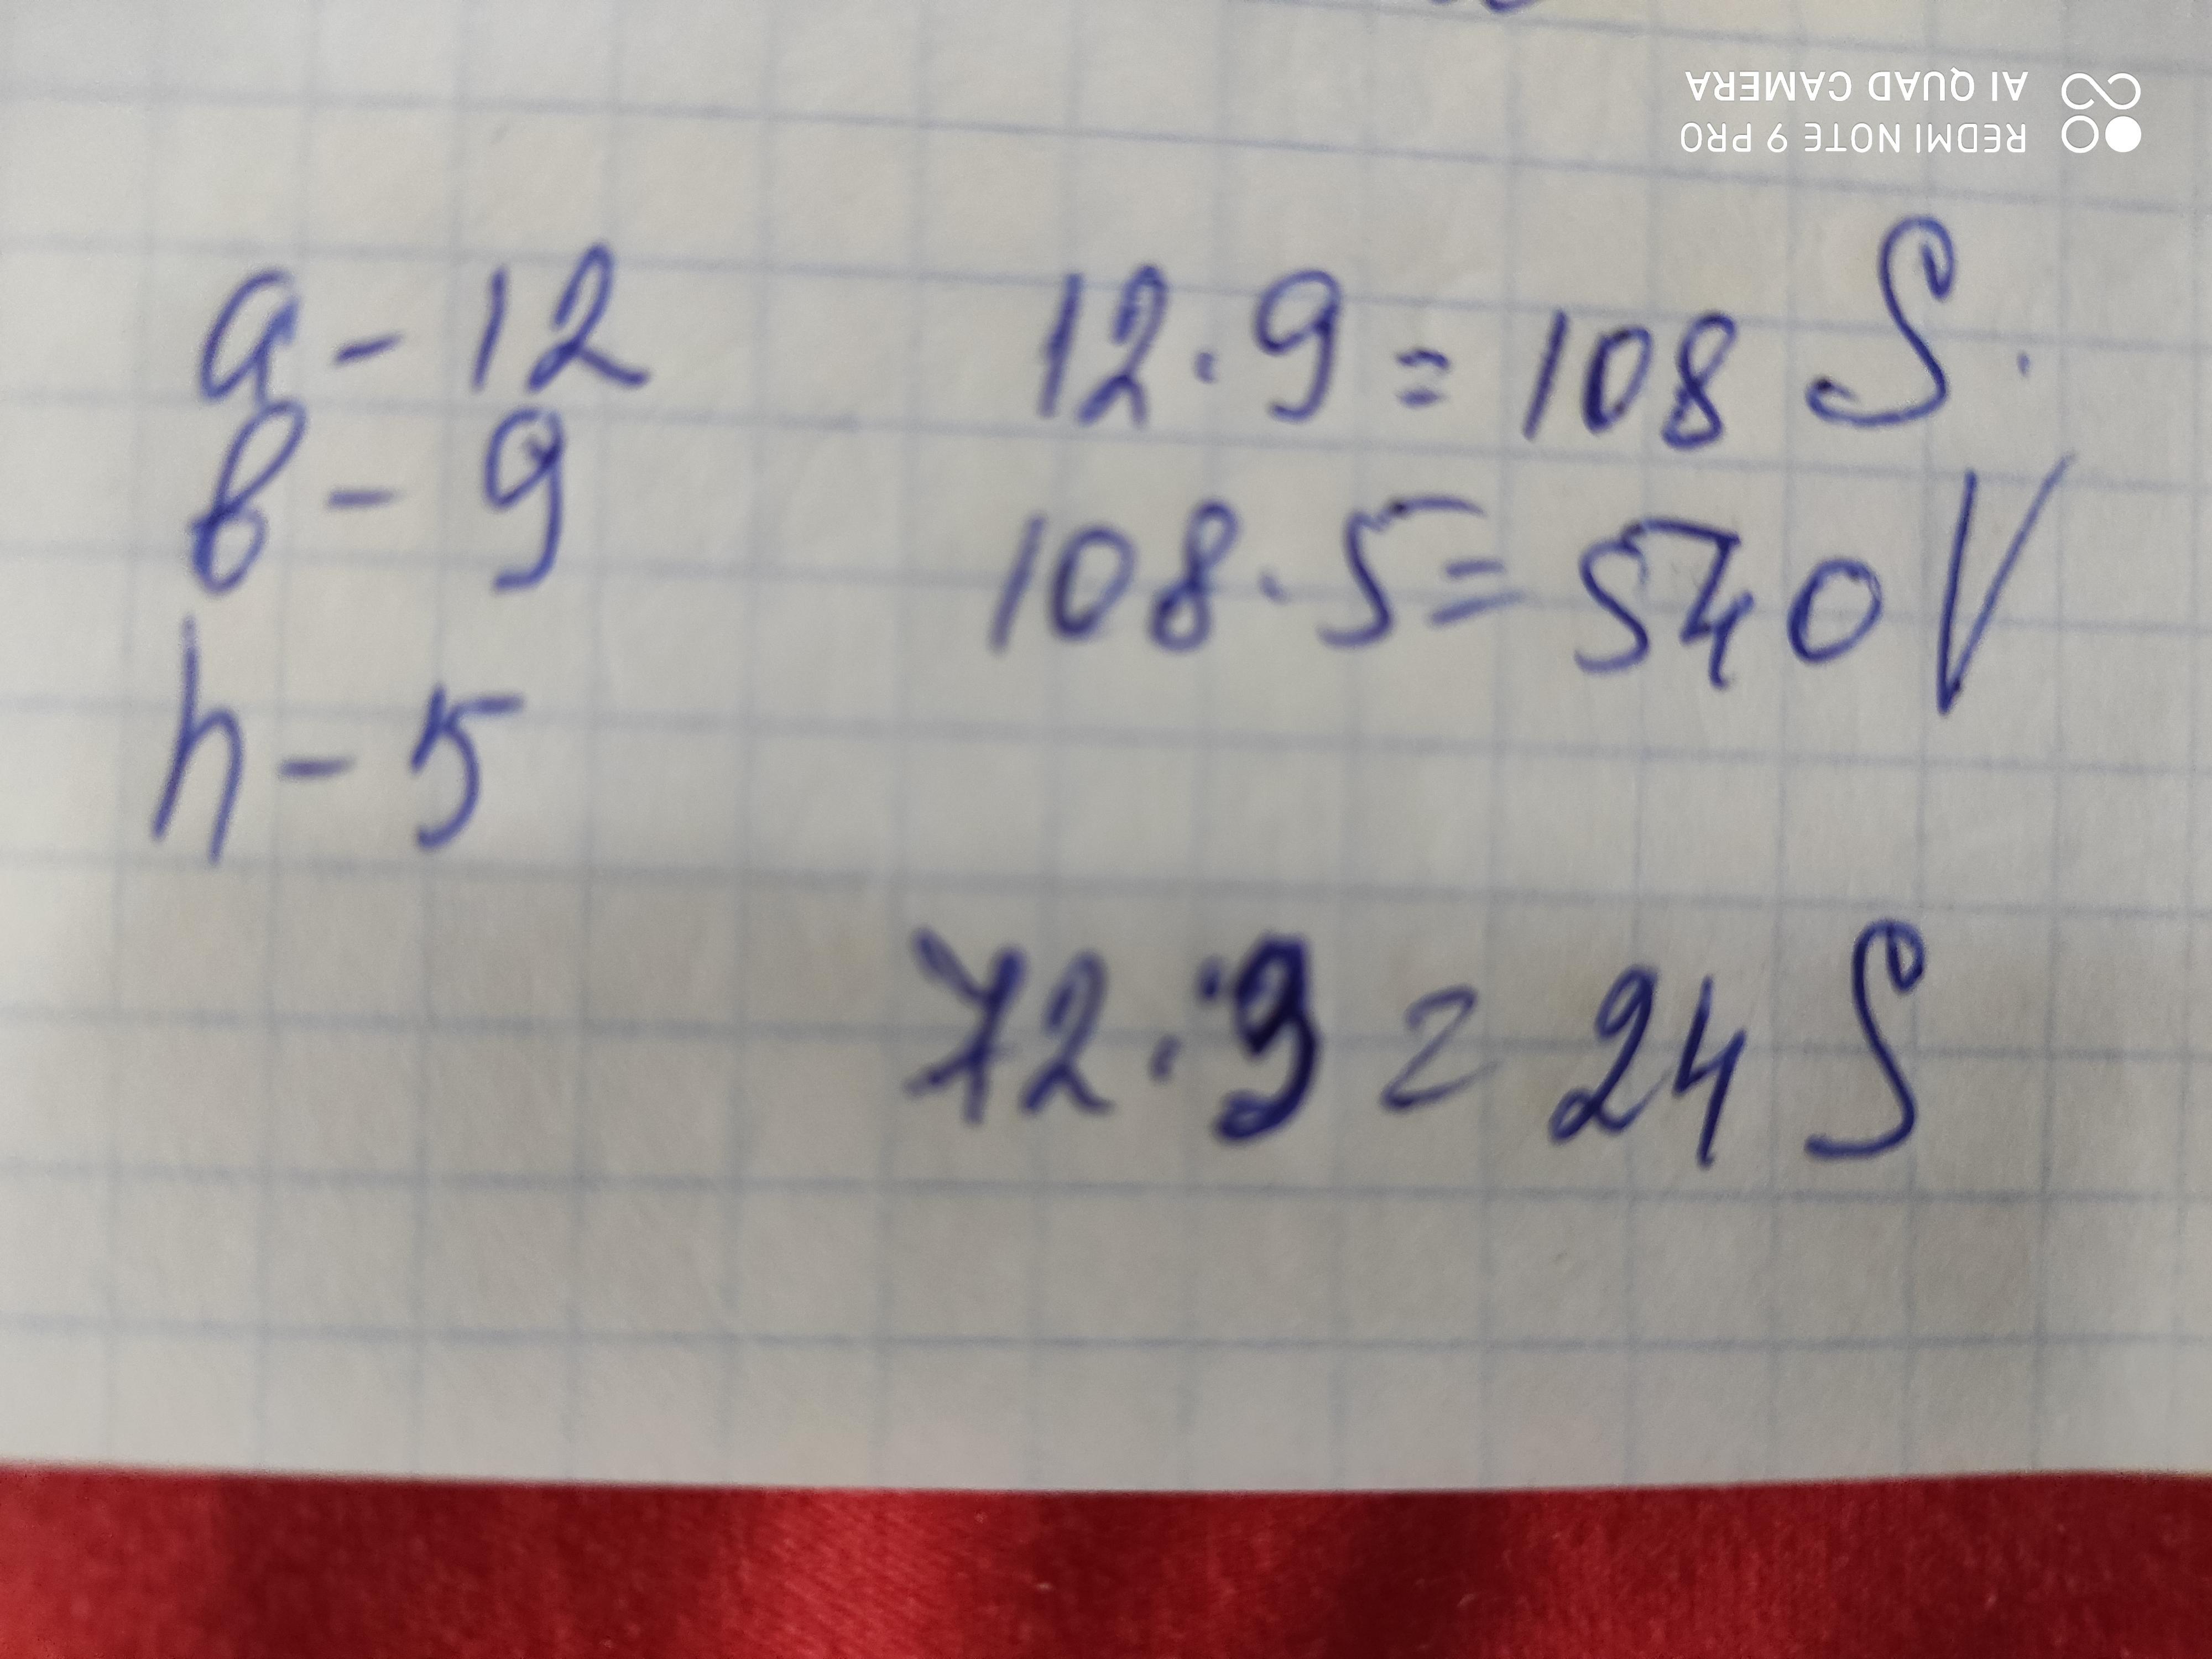 a - 12
12 · 9 = 108 S.
в - 9
108 · 5 = 540 V
h - 5
72 · 9 = 24 S
REDMI NOTE 9 PRO
AI QUAD CAMERA